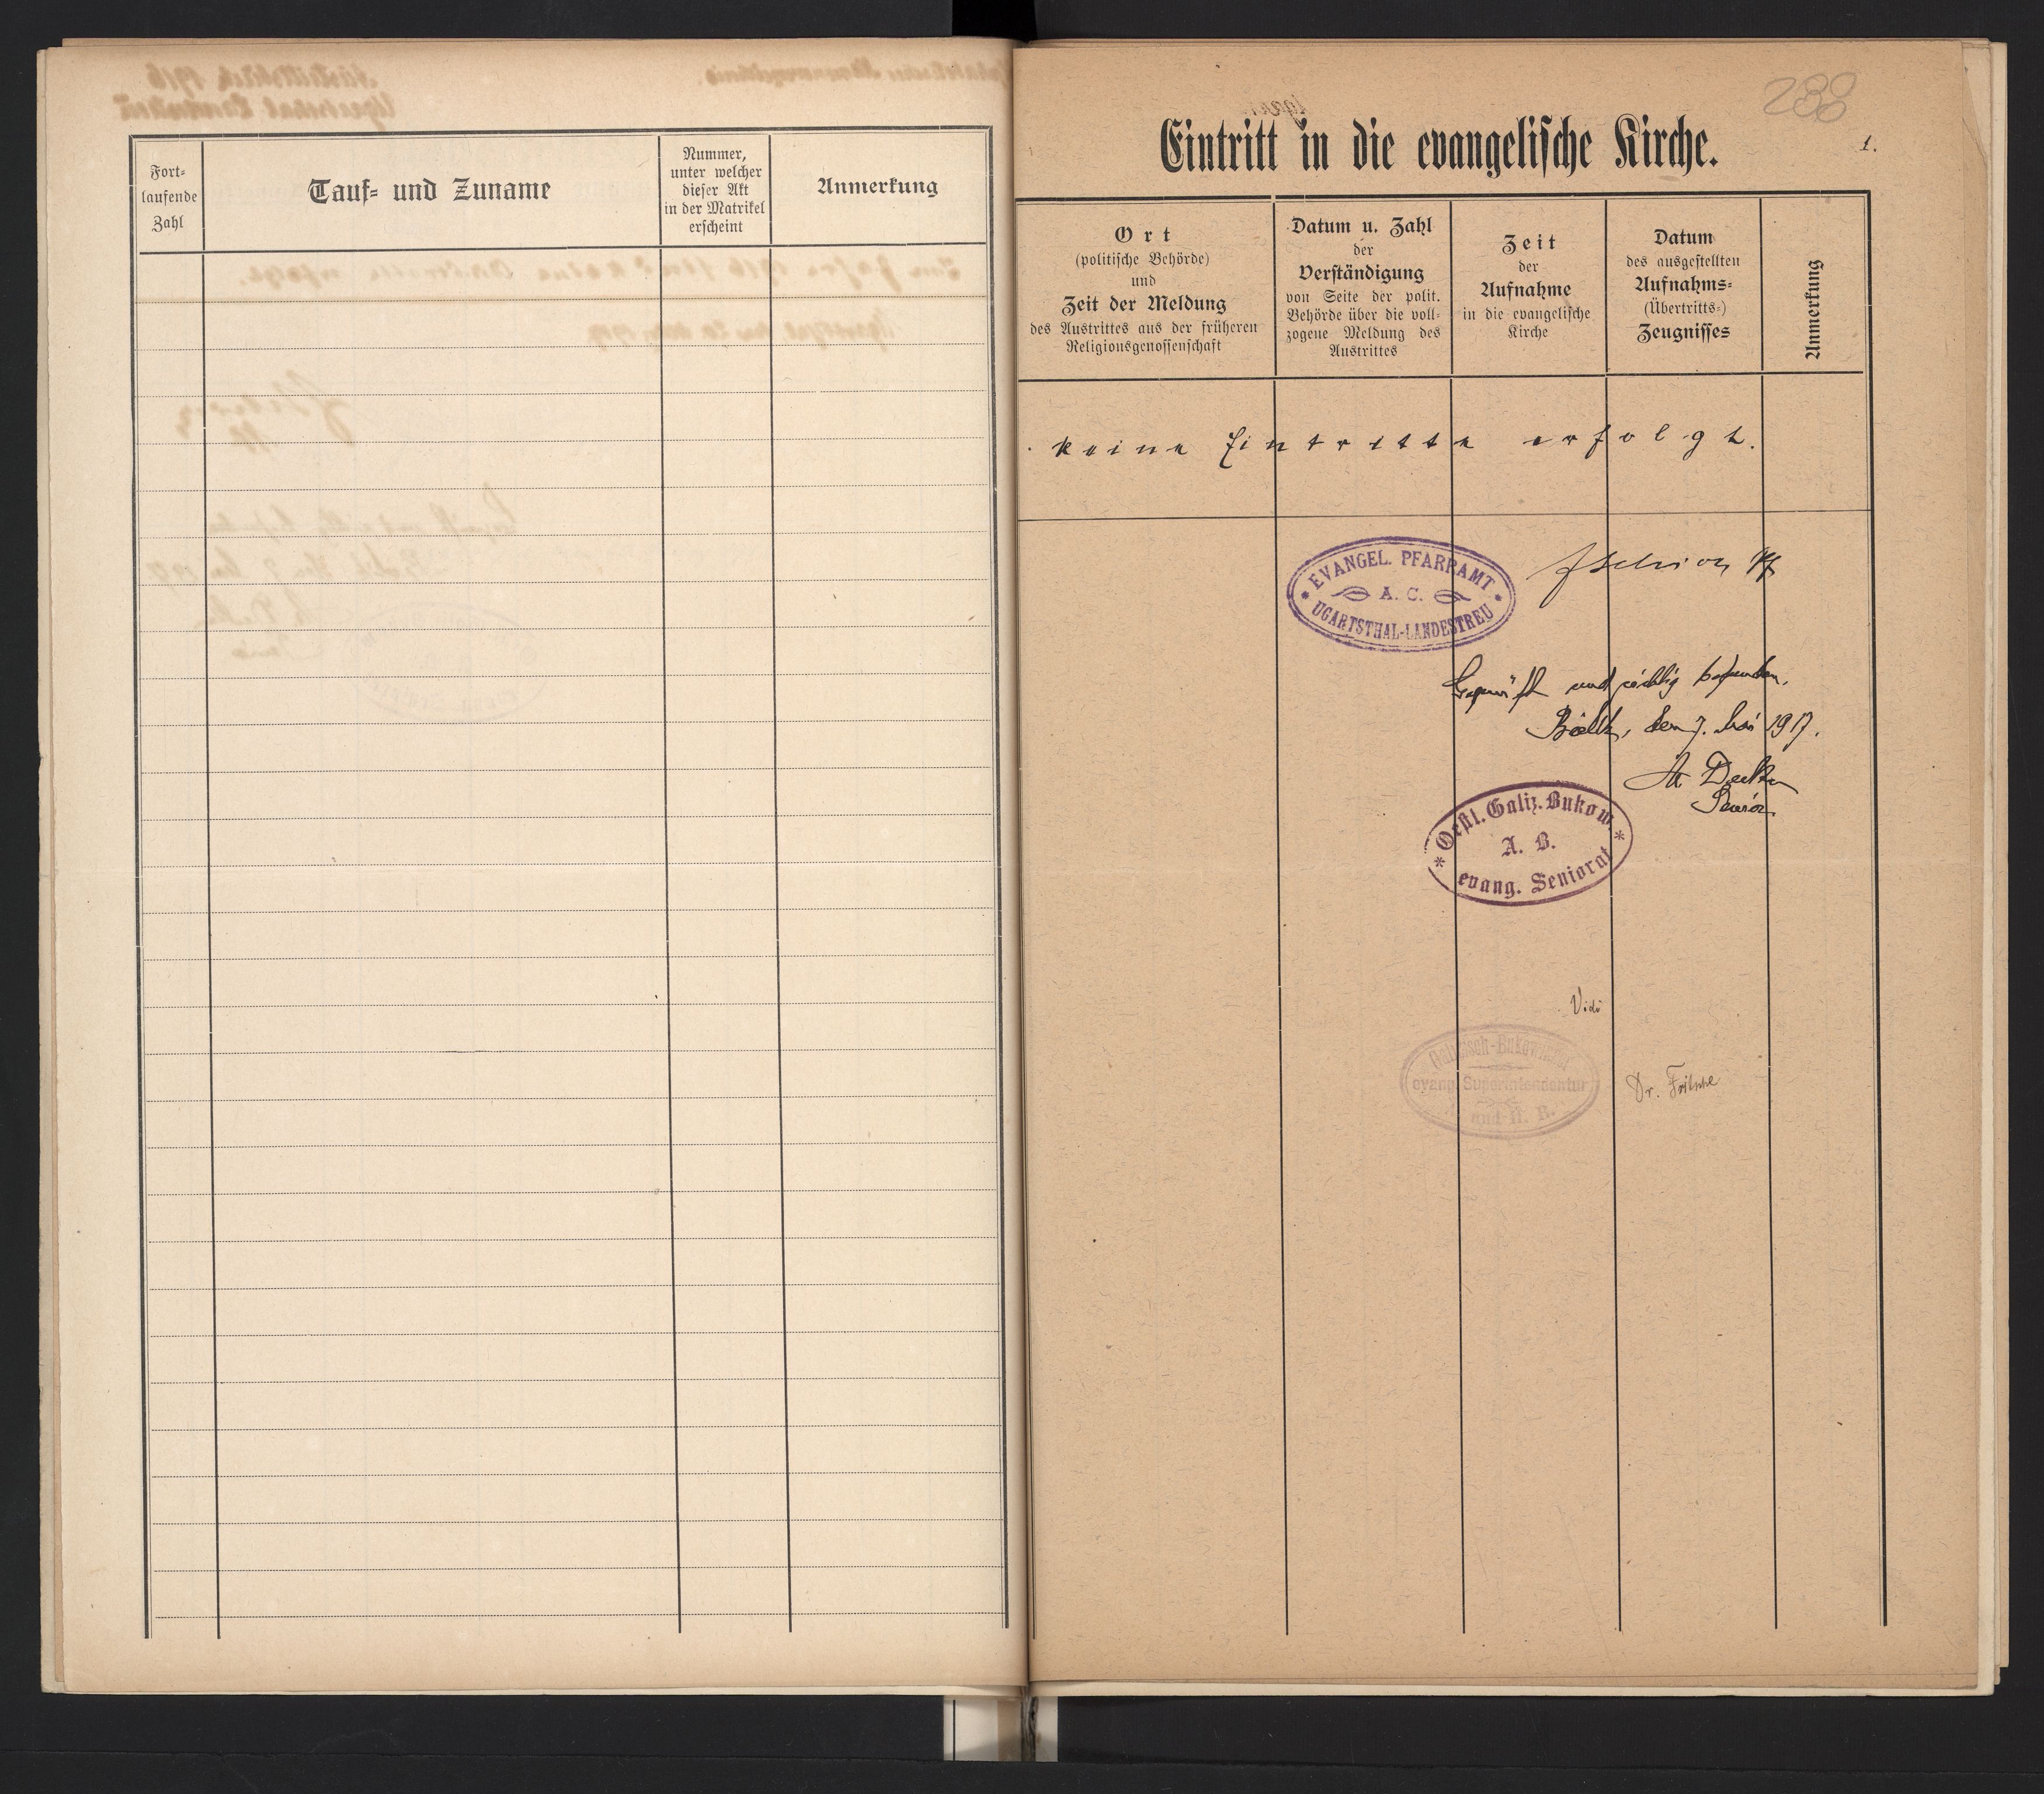 Fort-
laufende
Zahl
Tauf- und Zuname
Nummer,
unter welcher
dieser Akt
in der Matrikel
erscheint
Anmerkung
288
1.
Eintritt in die evangelische Kirche.
Ort
(politische Behörde)
und
Zeit der Meldung
des Austrittes aus der früheren
Religionsgenossenschaft
Datum u. Zahl
der
Verständigung
von Seite der polit.
Behörde über die voll-
zogene Meldung des
Austrittes
Zeit
der
Aufnahme
in die evangelische
Kirche
Datum
des ausgestellten
Aufnahms-
(Übertritts-)
Zeugnisses
Anmerkung
keine Eintritte erfolgt.
EVANGEL. PFARRAMT
A. C.
UGARTSTHAL-LANDESTREU
Geprüft und richtig befunden.
den 7. Mai 1917.
Senior
Oestl. Galiz. Bukow.
A. B.
evang. Seniorat
Vidi
Galizisch-Bukowiner
evang. Superintendentur
und H. B.
Dr. Fritsche